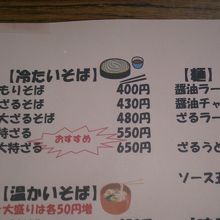 【冷たいそば】
もりそば 400円
ざるそば 430円
大ざるそば 480円
特ざる 550円
大特ざる 650円
おすすめ
【温かいそば】
大盛りは各50円増
【麺】
醤油ラー
醤油チャ
ざるラー
ざるうど
ソース